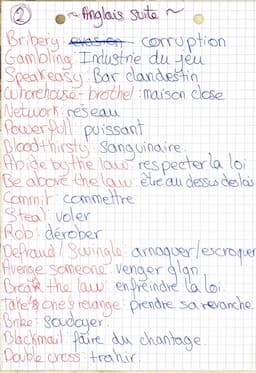 ② ~ Anglais suite ~
Bribery: corruption
Gambling Industrie du jeu
Speakeasy: Bar clandestin
Whorehouse - brothel: maison close
Network: réseau
Powerfull: puissant
Bloodthirsty: Sanguinaire.
Abide by the law: respecter la loi
Be above the law: être au dessus des lois
Commit: commettre
Steal: voler
Rob: dérober
Defraud / Swingle: arnaquer/escroquer
Avenge someone: venger qlqn
Break the law: enfreindre la loi.
Take's one's revange: prendre sa revanche.
Brike: Soudoyer.
Blackmail faire du chantage.
Double cross: trahir.